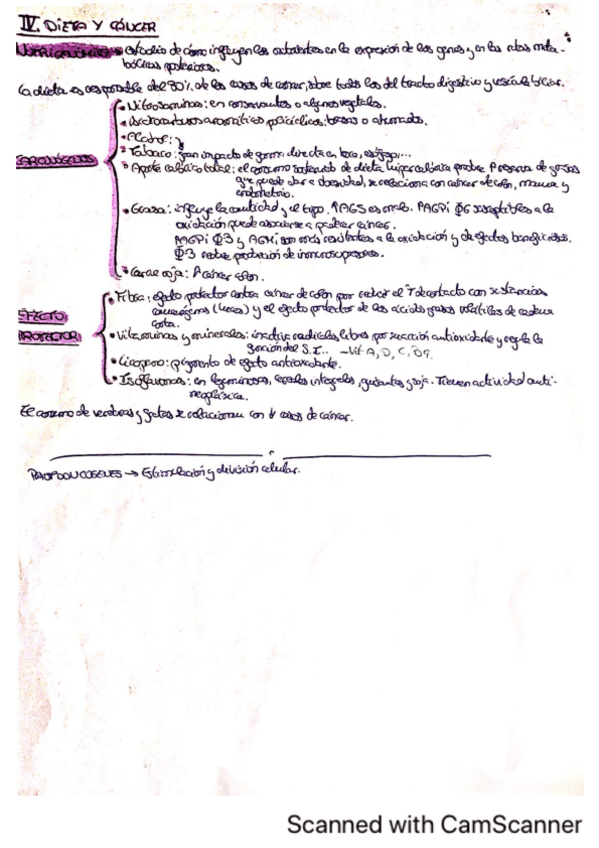 IV. DIETA Y CÁNCER
NUTRIGENÓMICA → estudio de cómo influyen los nutrientes en la expresión de los genes y en las rutas meta-
bólicas posteriores.
La dieta es responsable del 30% de los casos de cáncer, sobre todo los del tracto digestivo y vesícula biliar.
CARCINÓGENOS
• Nitrosaminas: en conservantes o algunos vegetales.
• Hidrocarburos aromáticos policíclicos: brasas o ahumados.
• Alcohol: }
• Tabaco: gran impacto de forma directa en boca, esófago,...
• Aporte calórico total: el consumo de dieta hipercalórica Presencia de grasas
que puede dar a obesidad, se relaciona con cáncer de colon, mama y
endometrio.
• Grasa: influye la cantidad y el tipo. ↑AGS es malo. PAGPi φ6 susceptibles a la
oxidación puede asociarse a padecer cáncer.
AGPi φ3 y AGMi son más resistentes a la oxidación y de efectos beneficiosos.
φ3 reduce producción de inmunosupresores.
• Carne roja: ↑ cáncer colon.
EFECTO
PROTECTOR
• Fibra: efecto protector contra cáncer de colon por reducir el T de contacto con sustancias
cancerígenas (heces) y el efecto protector de los ácidos grasos volátiles de cadena
corta.
• Vitaminas y minerales: inactiva radicales libres por reacción antioxidante y regula la
función del S.I... - Vit A, D, C, B9.
• Licopeno: pigmento de efecto antioxidante.
• Isoflavonas: en leguminosas, cereales integrales, guisantes y soja. Tienen actividad anti-
neoplásica.
El consumo de verduras y frutas se relacionan con ↓ casos de cáncer.
PROTOONCOGENES → Estimulación y división celular.
Scanned with CamScanner